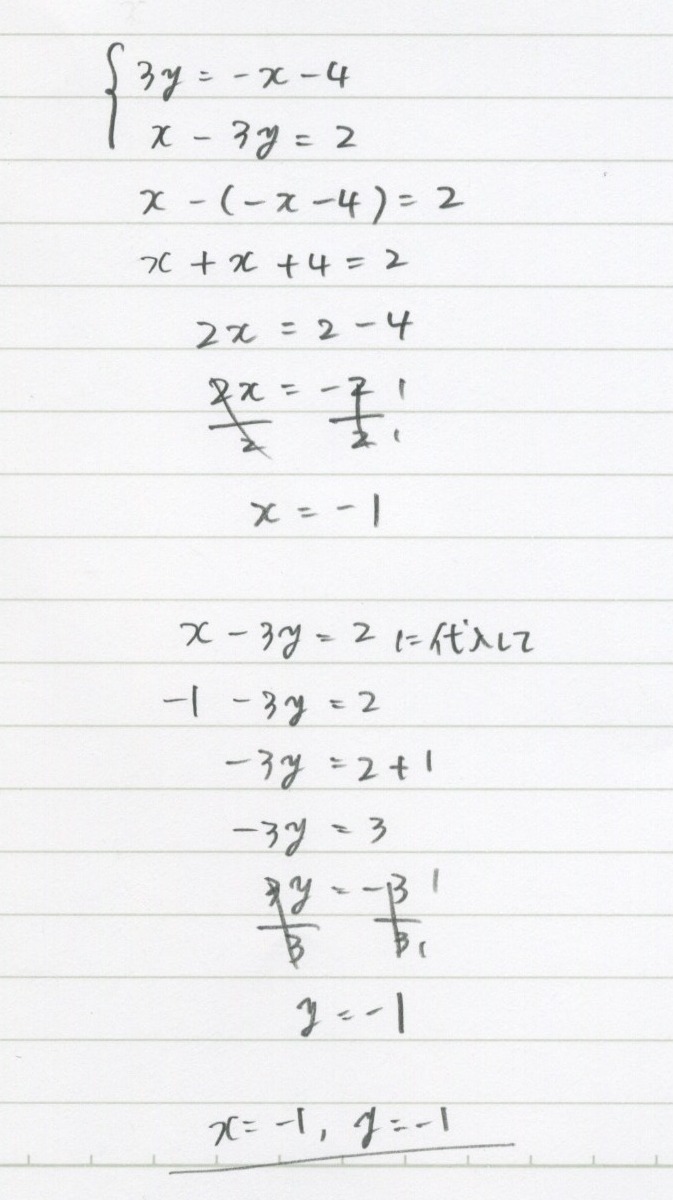 { 3y = -x - 4
x - 3y = 2
x - (-x - 4) = 2
x + x + 4 = 2
2x = 2 - 4
2x/2 = -2/2 1 1
x = -1
x - 3y = 2 に代入して
-1 - 3y = 2
-3y = 2 + 1
-3y = 3
3y/3 = -3/3 1 1
y = -1
x = -1, y = -1